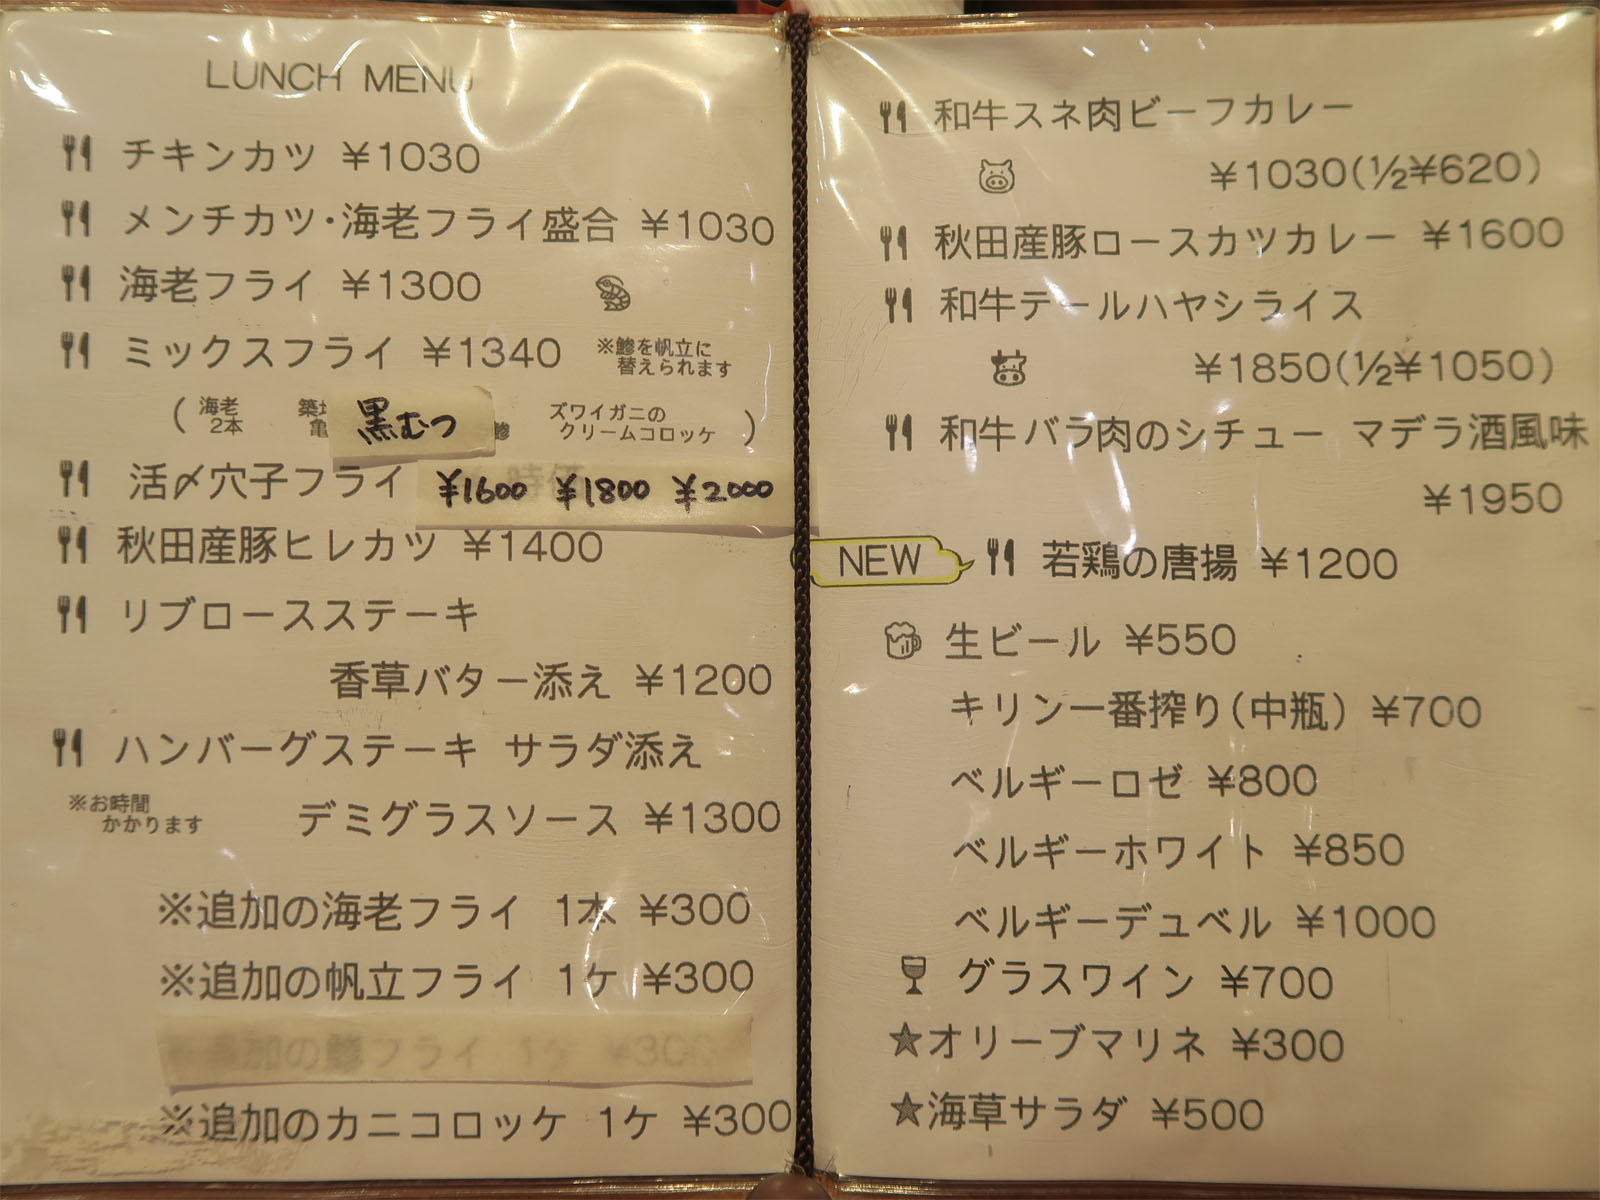 LUNCH MENU
チキンカツ ¥1030
メンチカツ・海老フライ盛合 ¥1030
海老フライ ¥1300
ミックスフライ ¥1340 ※鯵を帆立に
替えられます
(海老 築 ズワイガニの
2本 亀 黒むつ 鯵 クリームコロッケ)
活〆穴子フライ ¥1600 ¥1800 ¥2000
秋田産豚ヒレカツ ¥1400
リブロースステーキ
香草バター添え ¥1200
ハンバーグステーキ サラダ添え
※お時間
かかります デミグラスソース ¥1300
※追加の海老フライ 1本 ¥300
※追加の帆立フライ 1ケ ¥300
追加の鯵フライ 1ケ ¥300
※追加のカニコロッケ 1ケ ¥300
和牛スネ肉ビーフカレー
¥1030(½¥620)
秋田産豚ロースカツカレー ¥1600
和牛テールハヤシライス
¥1850(½¥1050)
和牛バラ肉のシチュー マデラ酒風味
¥1950
NEW 若鶏の唐揚 ¥1200
生ビール ¥550
キリン一番搾り(中瓶) ¥700
ベルギーロゼ ¥800
ベルギーホワイト ¥850
ベルギーデュベル ¥1000
グラスワイン ¥700
★オリーブマリネ ¥300
★海草サラダ ¥500